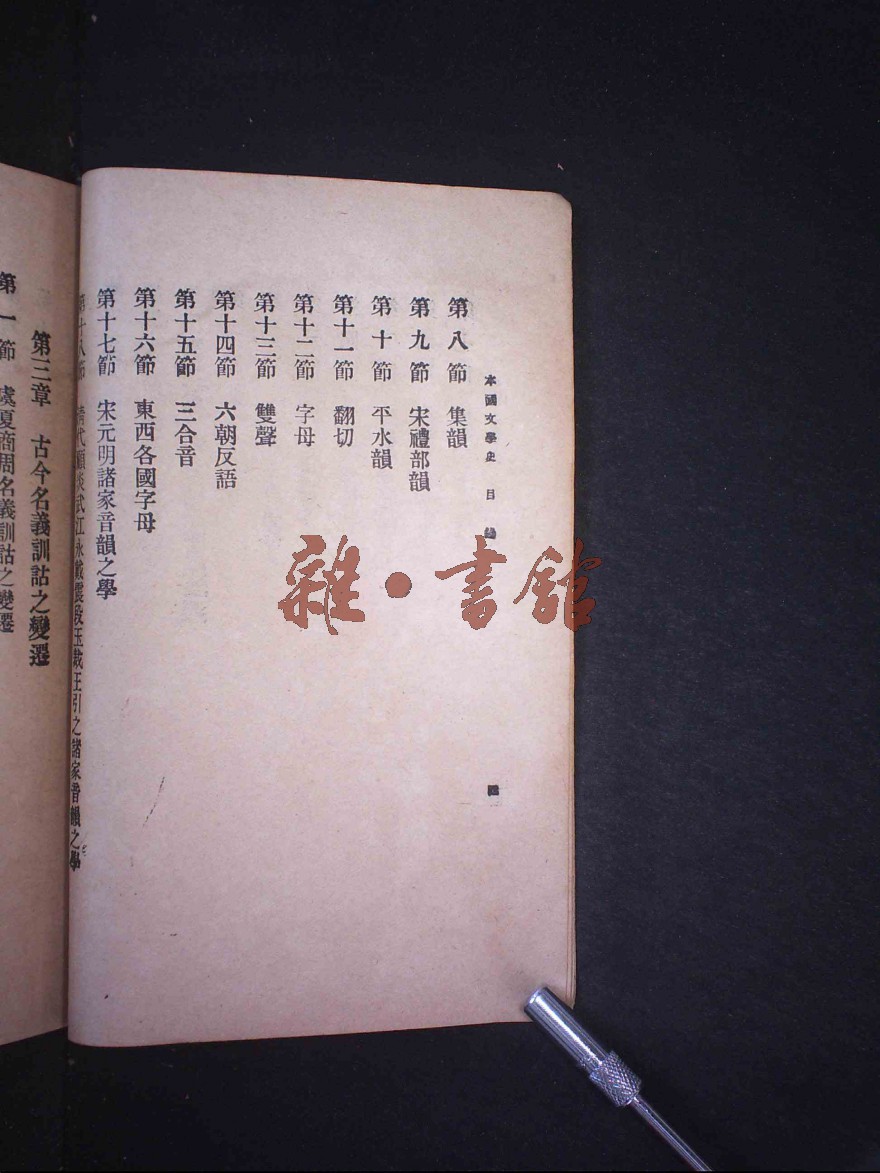 本國文學史 目錄 四
第八節 集韻
第九節 宋禮部韻
第十節 平水韻
第十一節 翻切
第十二節 字母
第十三節 雙聲
第十四節 六朝反語
第十五節 三合音
第十六節 東西各國字母
第十七節 宋元明諸家音韻之學
第十八節 清代顧炎武江永戴震段玉裁王引之諸家音韻之學
第三章 古今名義訓詁之變遷
第一節 虞夏商周名義訓詁之變遷
雜·書館